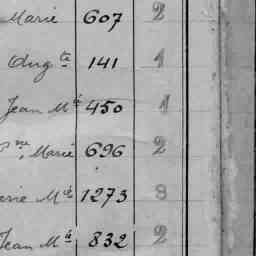 Marie 607 2
Aug te 141 1
Jean M ie 450 1
ne Marie 696 2
M ie 1273 8
Jean M ie 832 2